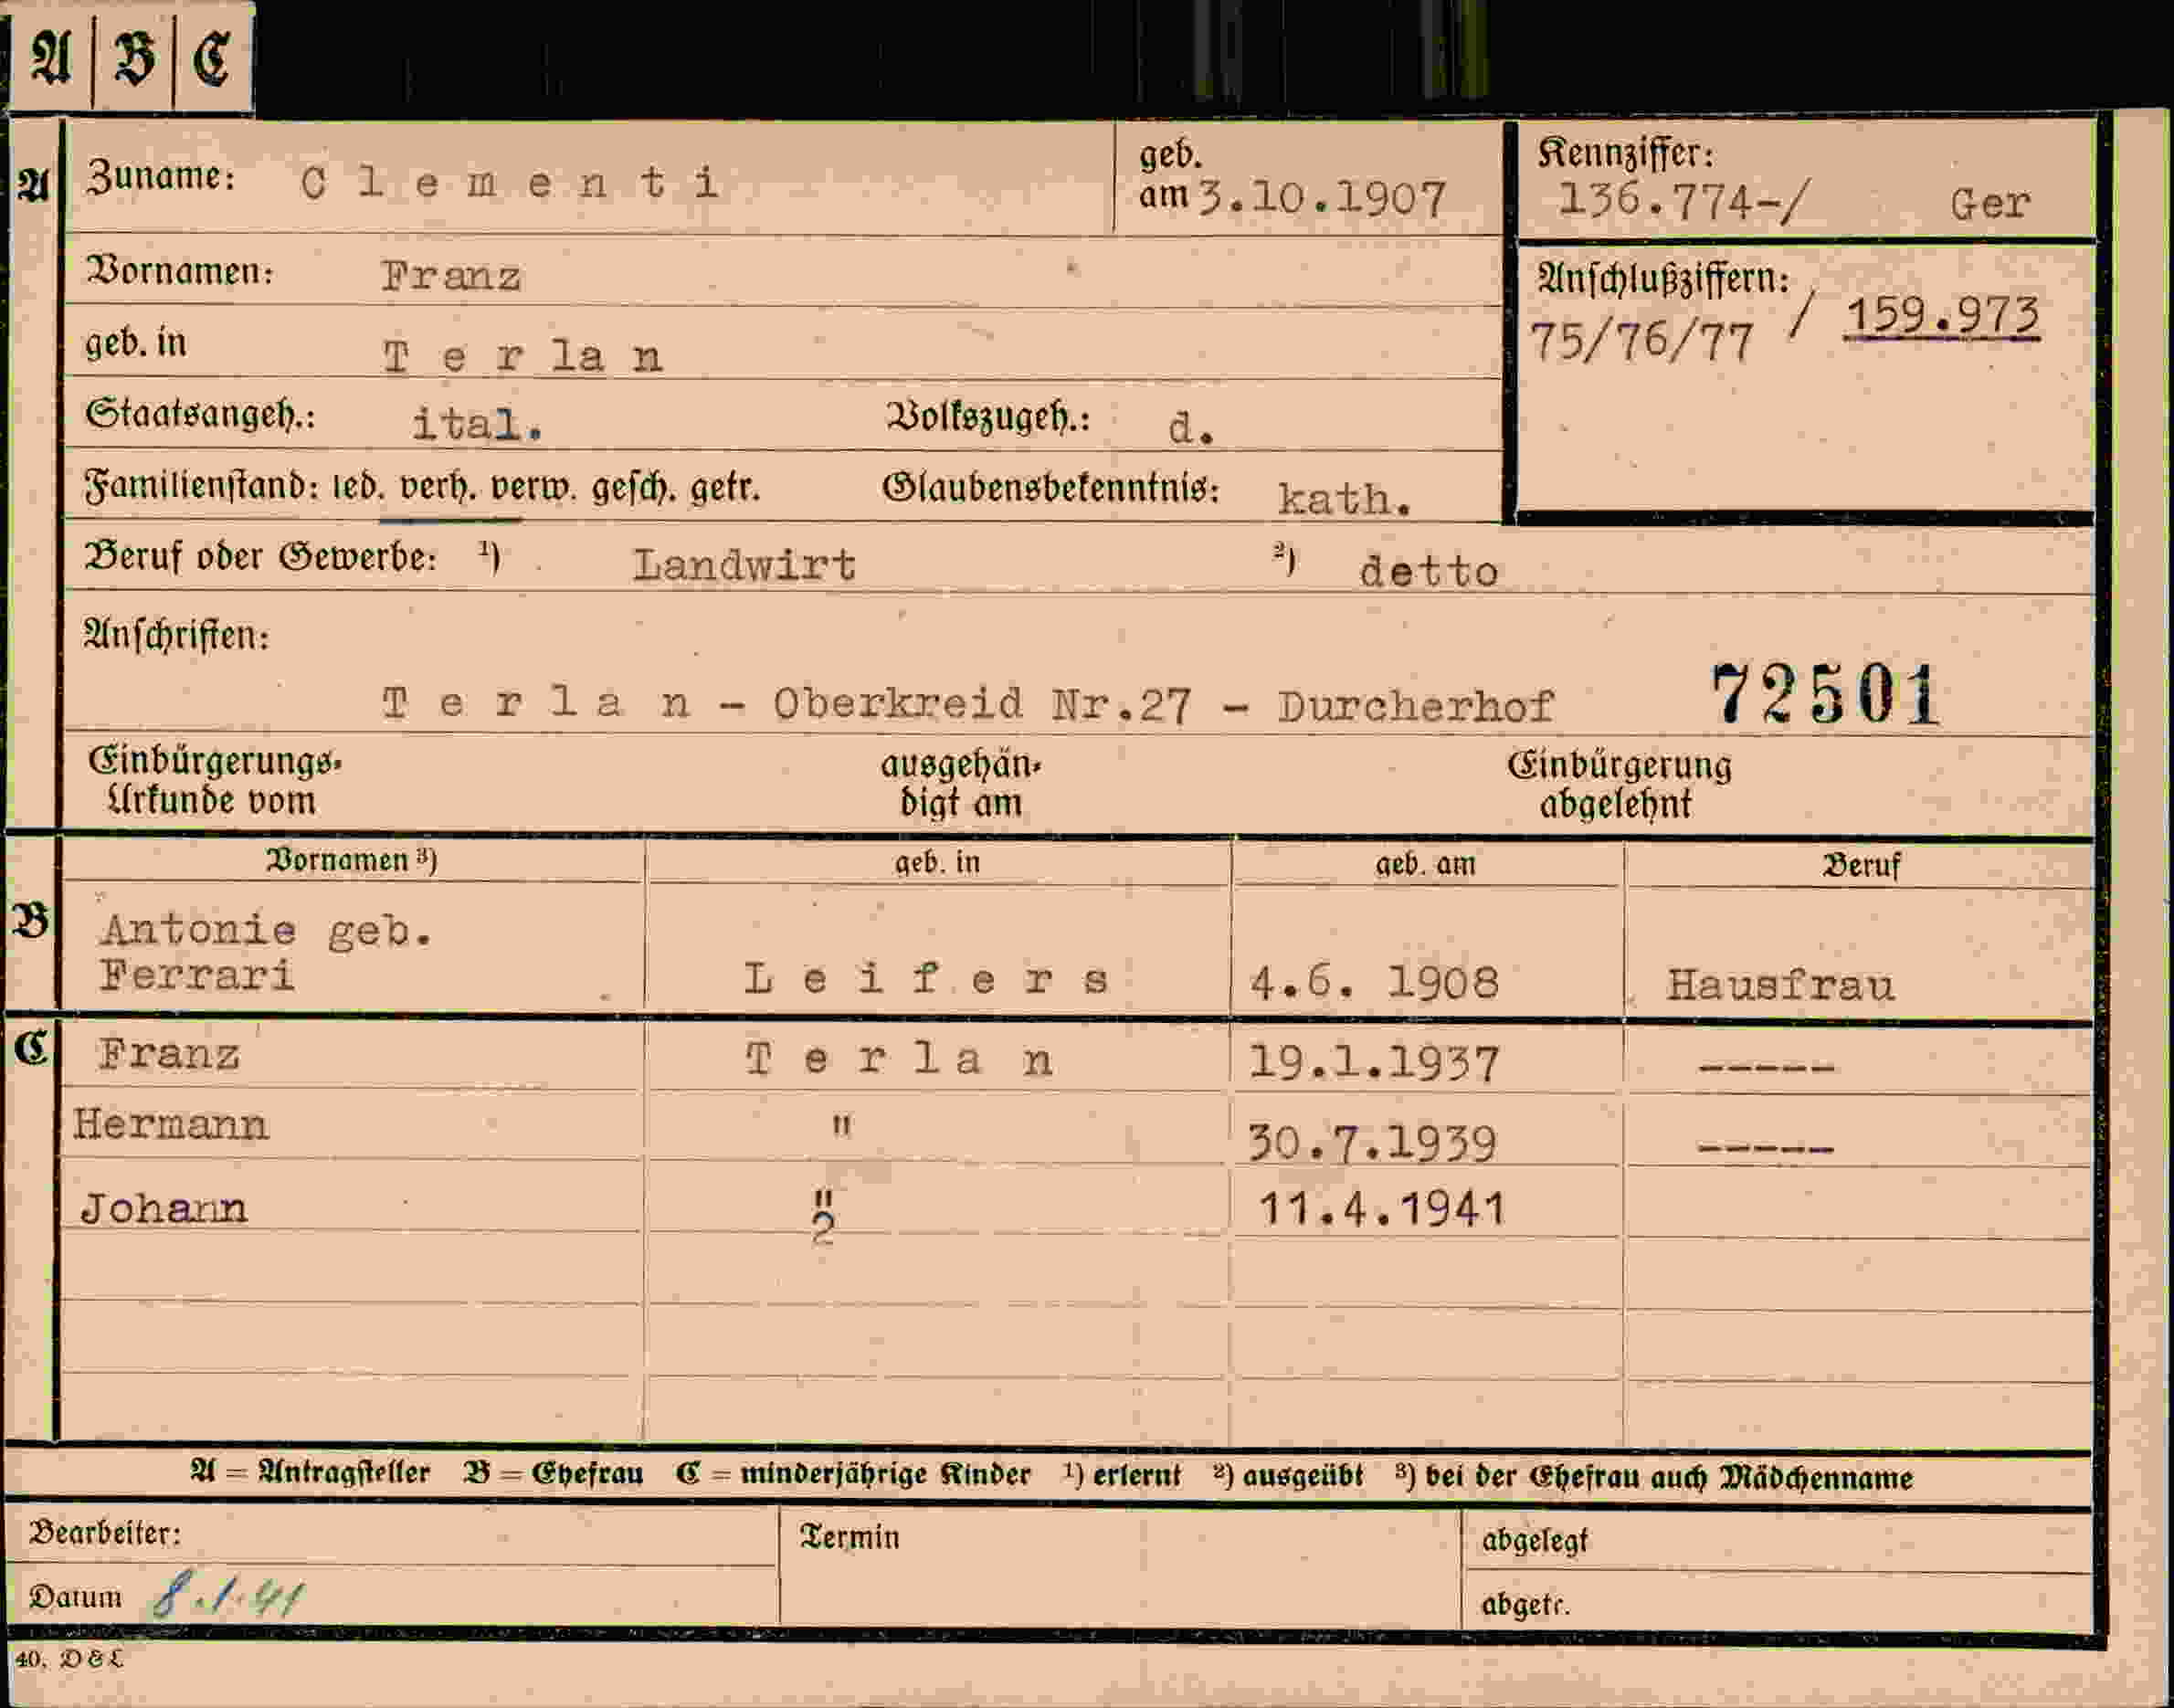 A B C
A Zuname: C l e m e n t i geb. am 3.10.1907 Kennziffer: 136.774-/ Ger
Vornamen: Franz
Anschlußziffern: 75/76/77 / 159.973
geb. in T e r la n
Staatsangeh.: ital. Volkszugeh.: d.
Familienstand: led. verh. verw. gesch. getr. Glaubensbekenntnis: kath.
Beruf oder Gewerbe: 1) Landwirt 2) detto
Anschriften:
T e r l a n - Oberkreid Nr.27 - Durcherhof 72501
Einbürgerungs- ausgehän- Einbürgerung
Urkunde vom digt am abgelehnt
Vornamen 3) geb. in geb. am Beruf
B Antonie geb.
Ferrari L e i f e r s 4.6. 1908 Hausfrau
C Franz T e r l a n 19.1.1937 -----
Hermann " 30.7.1939 -----
Johann " 11.4.1941
?
A = Antragsteller B = Ehefrau C = minderjährige Kinder 1) erlernt 2) ausgeübt 3) bei der Ehefrau auch Mädchenname
Bearbeiter: Termin abgelegt
Datum 8.1.41 abgetr.
40, D & L